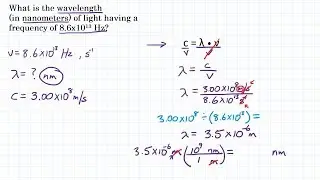 What is the wavelength
(in nanometers) of light having a
frequency of 8.6x10¹³ Hz?
ν = 8.6x10¹³ Hz, s⁻¹
λ = ? nm
C = 3.00x10⁸ m/s
c/ν = λ • ν/ν
λ = c/ν
λ = 3.00x10⁸ m/s / 8.6x10¹³ s⁻¹
3.00x10⁸ ÷ (8.6x10¹³) =
λ = 3.5x10⁻⁶ m
3.5x10⁻⁶ m (10⁹ nm / 1 m) = nm